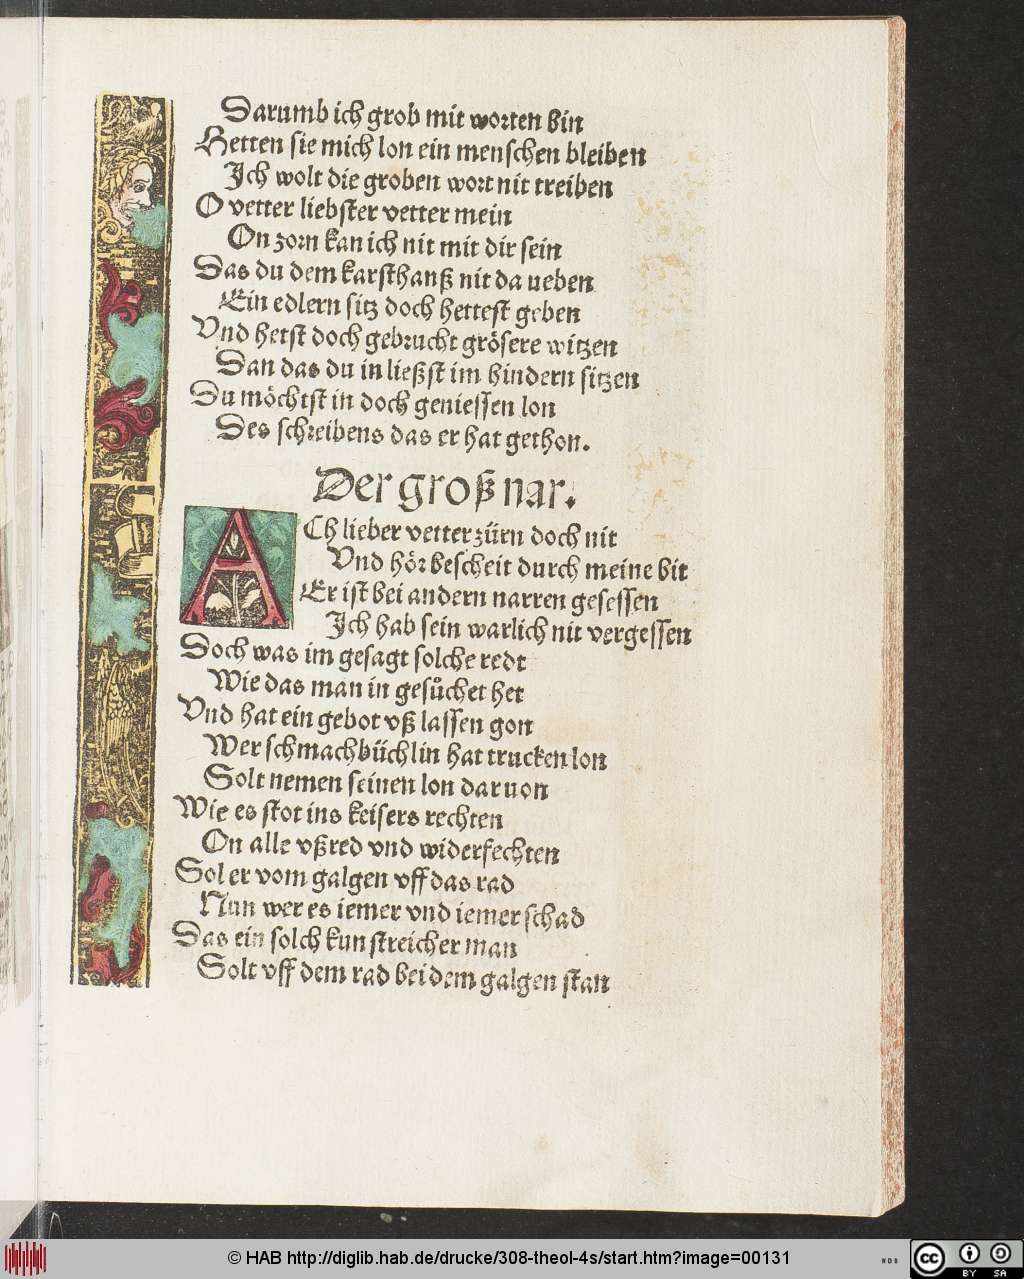 Darumb ich grob mit worten bin
Hetten sie mich lon ein menschen bleiben
Jch wolt die groben wort nit treiben
O vetter liebster vetter mein
On zorn kan ich nit mit dir sein
Das du dem karsthanß nit da ueben
Ein edlern sitz doch hettest geben
Vnd hetst doch gebrucht grösere witzen
Dan das du in ließst im hindern sitzen
Du möchtst in doch geniessen lon
Des schreibens das er hat gethon.
Der groß nar.
ACh lieber vetter zürn doch nit
Vnd hör bescheit durch meine bit
Er ist bei andern narren gesessen
Jch hab sein warlich nit vergessen
Doch was im gesagt solche redt
Wie das man in gesůchet het
Vnd hat ein gebot vß lassen gon
Wer schmachbüchlin hat trucken lon
Solt nemen seinen lon daruon
Wie es stot ins keisers rechten
On alle vßred vnd widerfechten
Sol er vom galgen vff das rad
Nun wer es iemer vnd iemer schad
Das ein solch kunstreicher man
Solt vff dem rad bei dem galgen stan
© HAB http://diglib.hab.de/drucke/308-theol-4s/start.htm?image=00131
WDB
cc BY SA